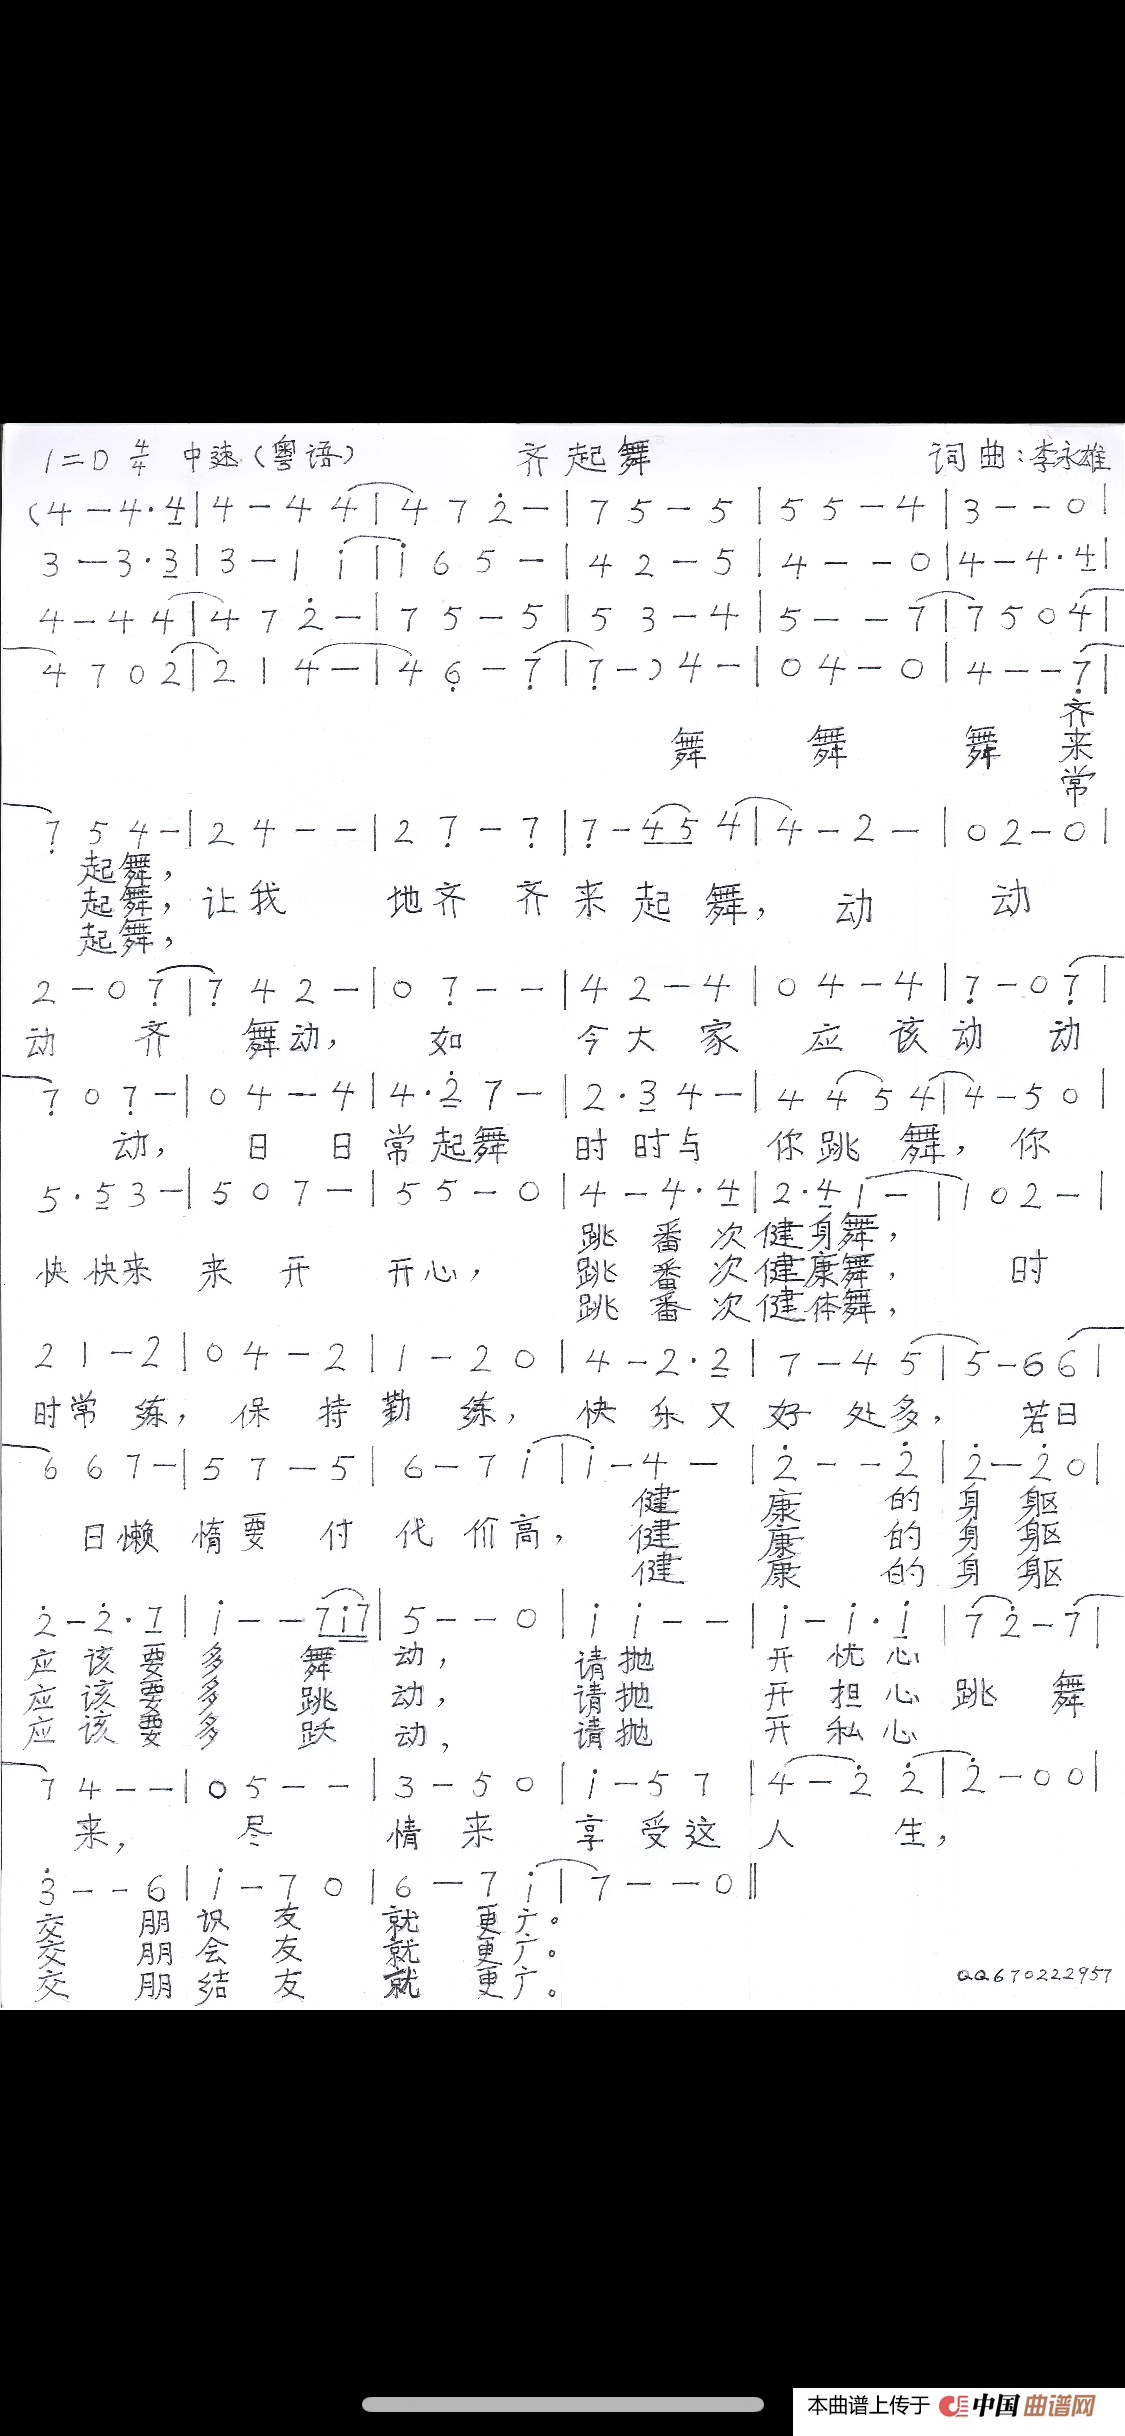 1=D 4/4 中速（粤语） 齐起舞 词曲：李永雄
(4 — 4·4 | 4 — 4 4 | 4 7 2̇ — | 7 5 — 5 | 5 5 — 4 | 3 — — 0 |
3 — 3·3 | 3 — 1 i | i 6 5 — | 4 2 — 5 | 4 — — 0 | 4 — 4·4 |
4 — 4 4 | 4 7 2̇ — | 7 5 — 5 ‖ 5 3 — 4 | 5 — — 7 | 7 5 0 4 |
4 7 0 2 | 2 1 4 — | 4 6̣ — 7̣ | 7̣ — ) 4 — | 0 4 — 0 | 4 — — 7̣ |
齐
舞 舞 舞 来
常
7̣ 5 4 — | 2 4 — — | 2 7̣ — 7̣ | 7̣ — 4 5 4 | 4 — 2 — | 0 2 — 0 |
起舞，
起舞，让我 地齐 齐来起舞，动 动
起舞，
2 — 0 7̣ | 7̣ 4 2 — | 0 7̣ — — | 4 2 — 4 | 0 4 — 4 | 7̣ — 0 7̣ |
动 齐 舞动，如 今大家 应该动 动
7̣ 0 7̣ — | 0 4 — 4 | 4·2̇ 7 — | 2·3 4 — | 4 4 5 4 | 4 — 5 0 |
动，日 日常起舞 时时与 你跳舞，你
5·5 3 — | 5 0 7 — | 5 5 — 0 | 4 — 4·4 | 2·4 1 — | 1 0 2 — |
跳番次健身舞，
快快来 来 开 开心，跳番次健康舞，时
跳番次健体舞，
2 1 — 2 | 0 4 — 2 | 1 — 2 0 | 4 — 2·2 | 7 — 4 5 | 5 — 6 6 |
时常练，保持勤练，快乐又好处多，若日
6 6 7 — | 5 7 — 5 | 6 — 7 i | i — 4 — | 2̇ — — 2̇ | 2̇ — 2̇ 0 |
健 康 的身躯
日懒惰要付代价高，健 康 的身躯
健 康 的身躯
2̇ — 2̇·1 | i — — 7 i 7 | 5 — — 0 | i i — — | i — i·i | 7 2̇ — 7 |
应该要多 舞动，请抛 开忧心
应该要多 跳动，请抛 开担心跳 舞
应该要多 跃动，请抛 开私心
7 4 — — | 0 5 — — | 3 — 5 0 | i — 5 7 | 4 — 2̇ 2̇ | 2̇ — 0 0 |
来，尽 情来 享受这人 生，
3̇ — — 6 | i — 7 0 | 6 — 7 i | 7 — — 0 ‖
交 朋识友 就更广。
交 朋会友 就更广。
交 朋结友 就更广。
QQ670222957
本曲谱上传于 中国曲谱网